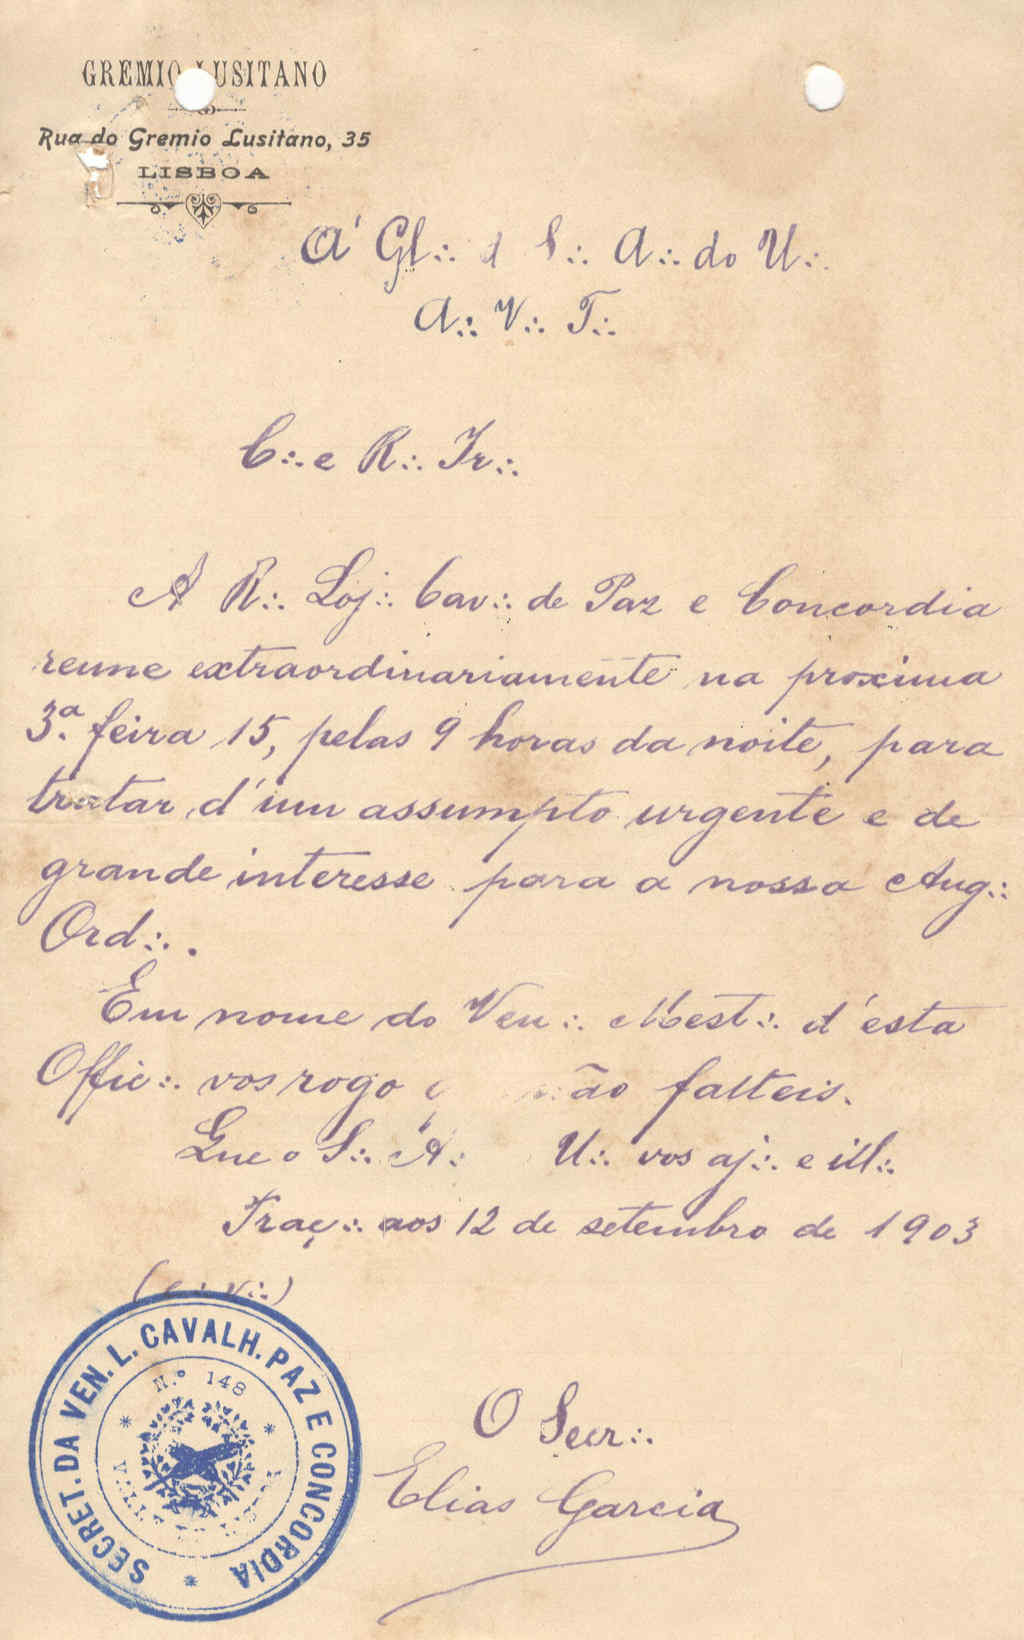 GREMIO LUSITANO
Rua do Gremio Lusitano, 35
LISBOA
Á Gl∴ d S∴ A∴ do U∴
A∴ V∴ T∴
C∴ e R∴ Ir∴
A R∴ Loj∴ Cav∴ de Paz e Concordia
reune extraordinariamente na proxima
3.ª feira 15, pelas 9 horas da noite, para
tratar d'um assumpto urgente e de
grande interesse para a nossa Aug∴
Ord∴.
Em nome do Ven∴ Mest∴ d'esta
Offic∴ vos rogo não falteis.
Que o S∴ A∴ U∴ vos aj∴ e ill∴
Traç∴ aos 12 de setembro de 1903
(e∴ v∴)
SECRET. DA VEN. L. CAVALH. PAZ E CONCORDIA
N.º 148
O Secr∴
Elias Garcia